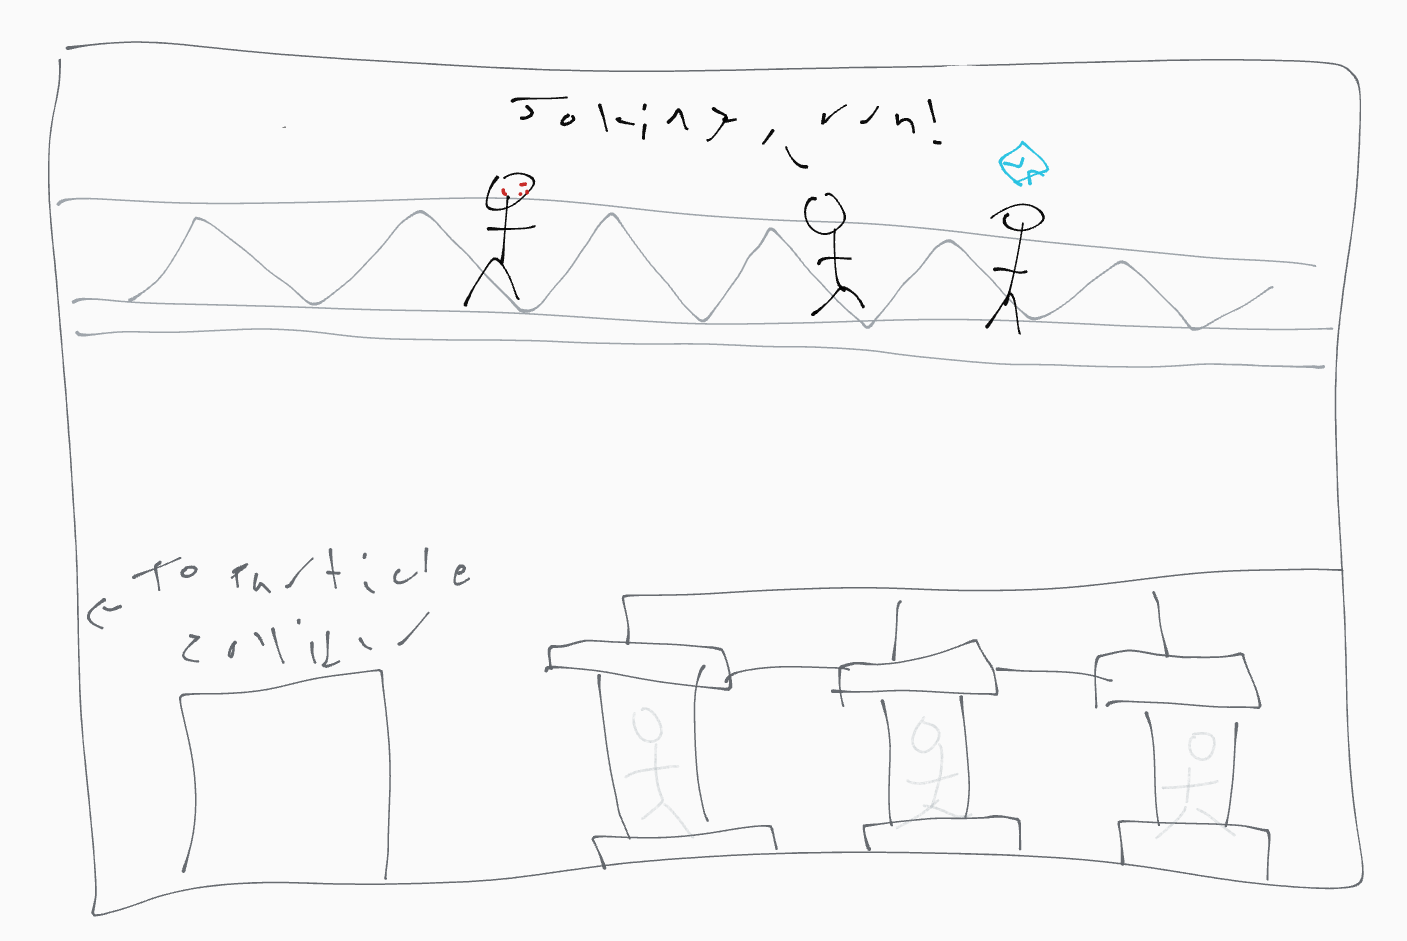 Jolking, run!
← To Particle
Collider